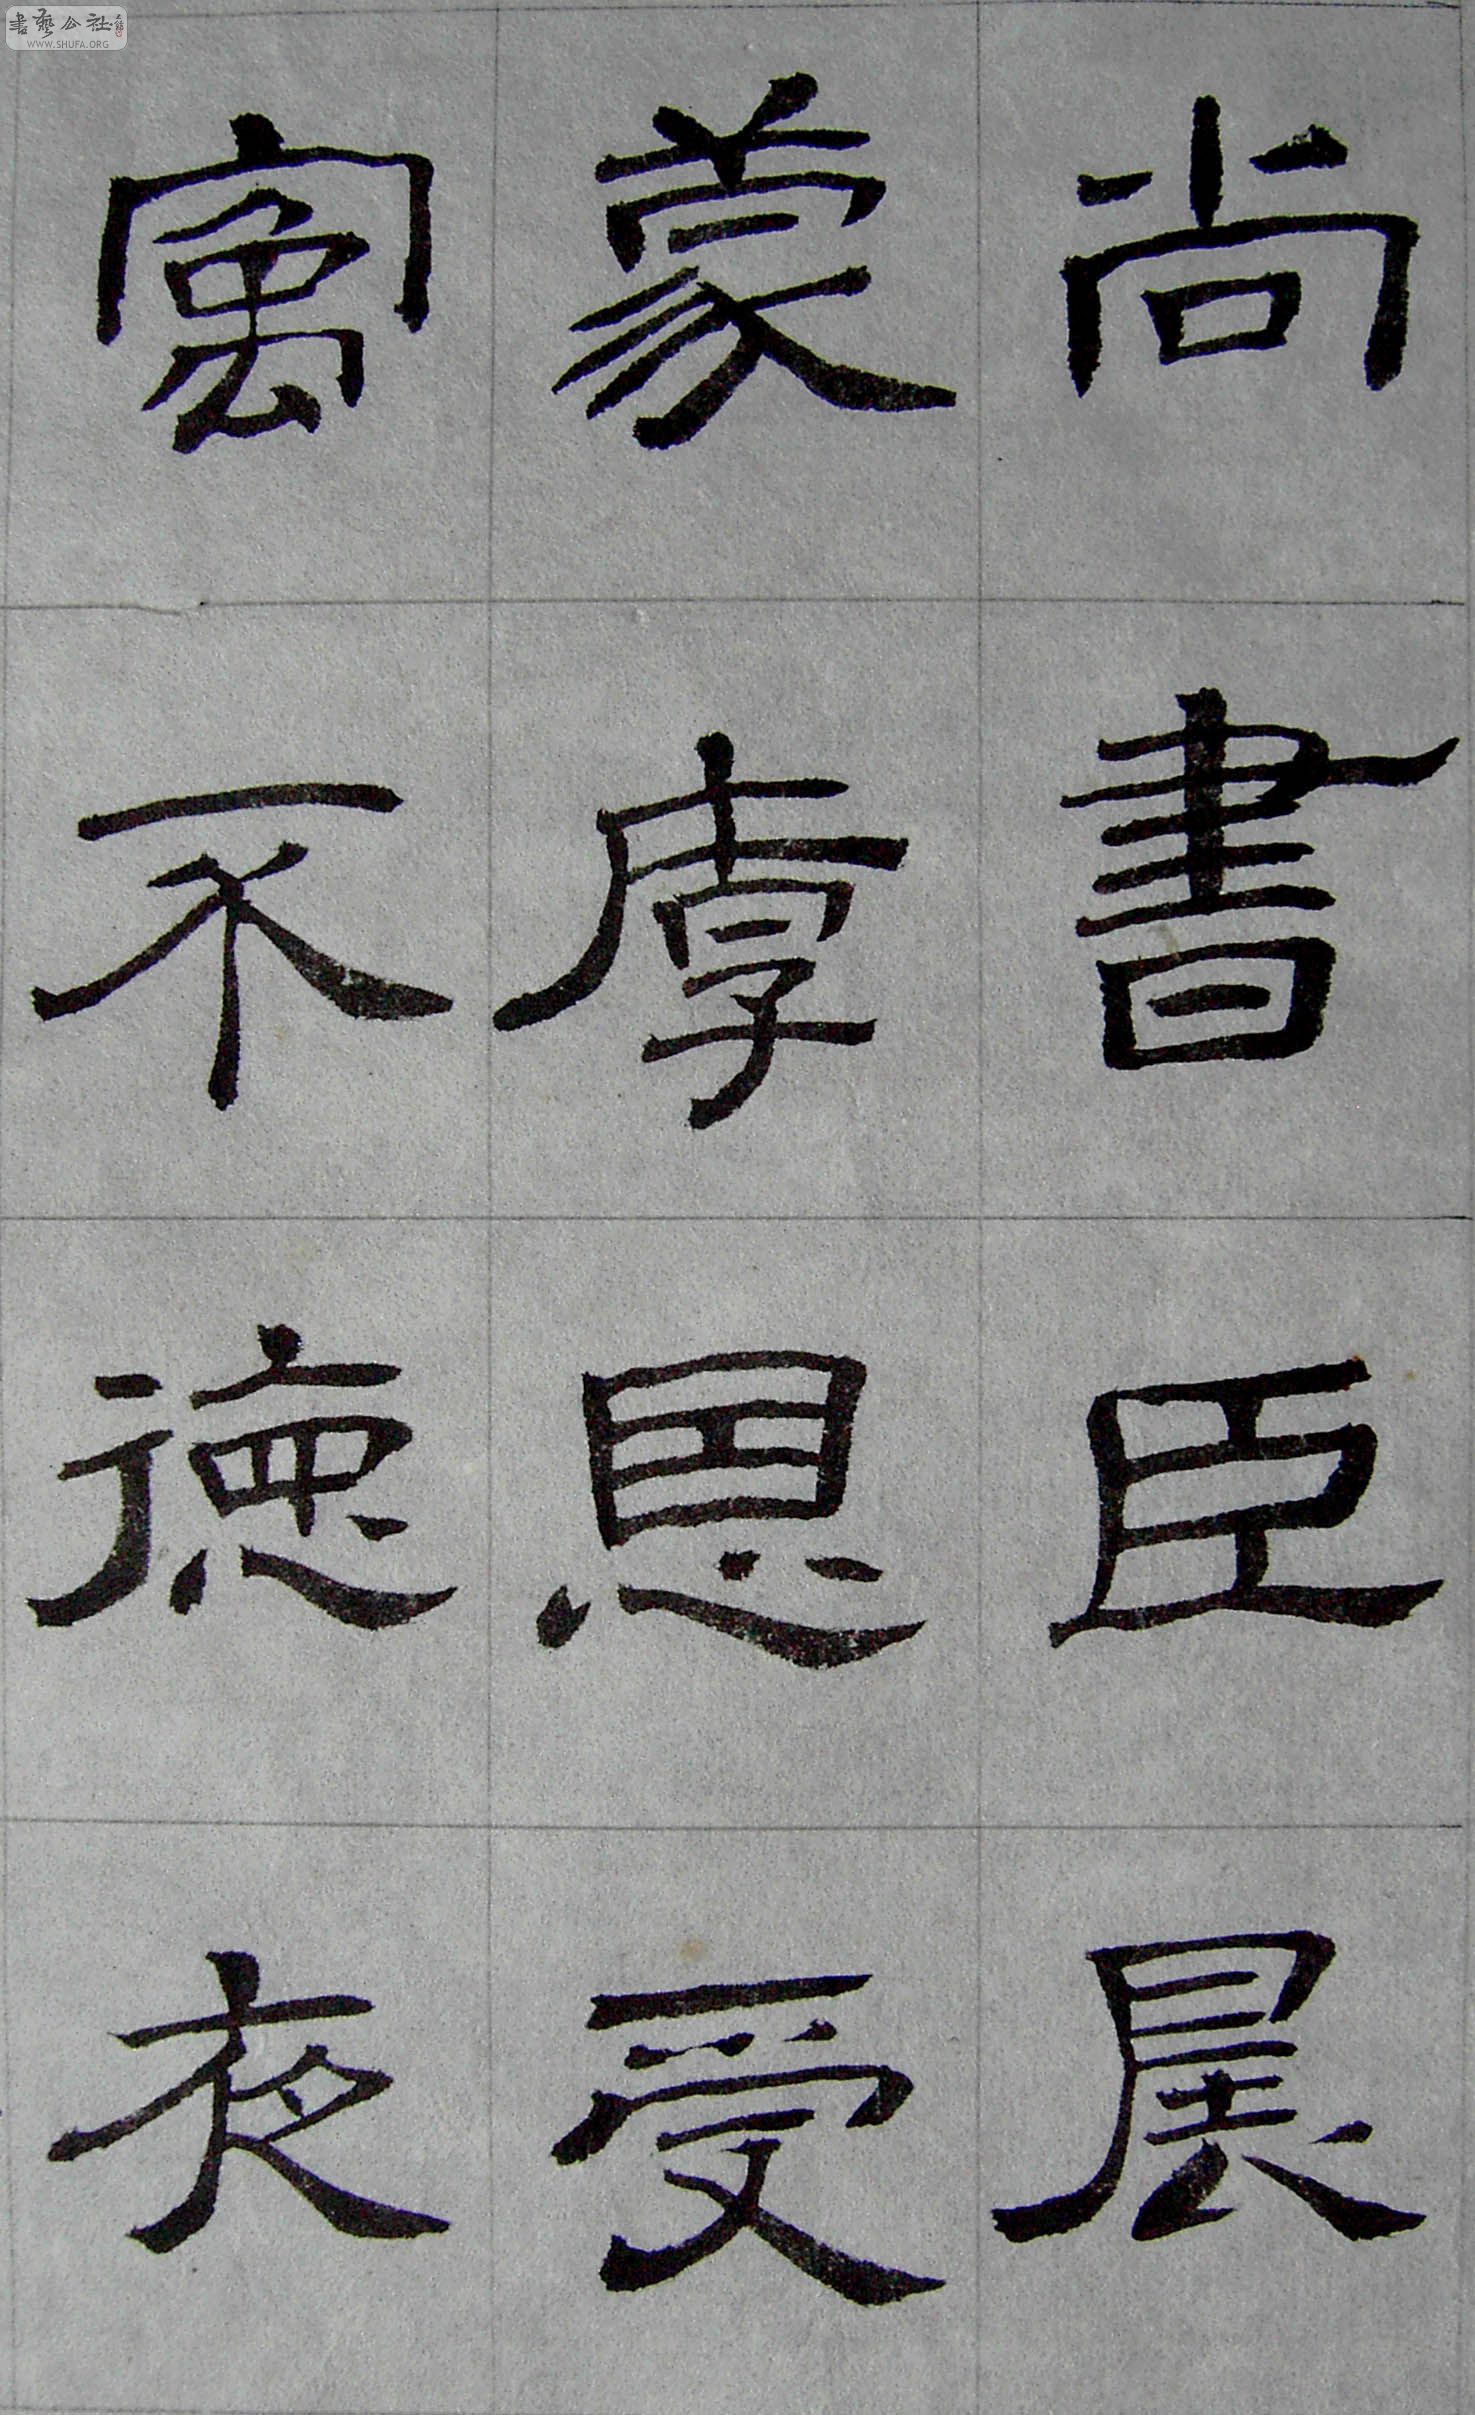 尚書臣晨
蒙厚恩受
寓不德夜
書藝公社
WWW.SHUFA.ORG